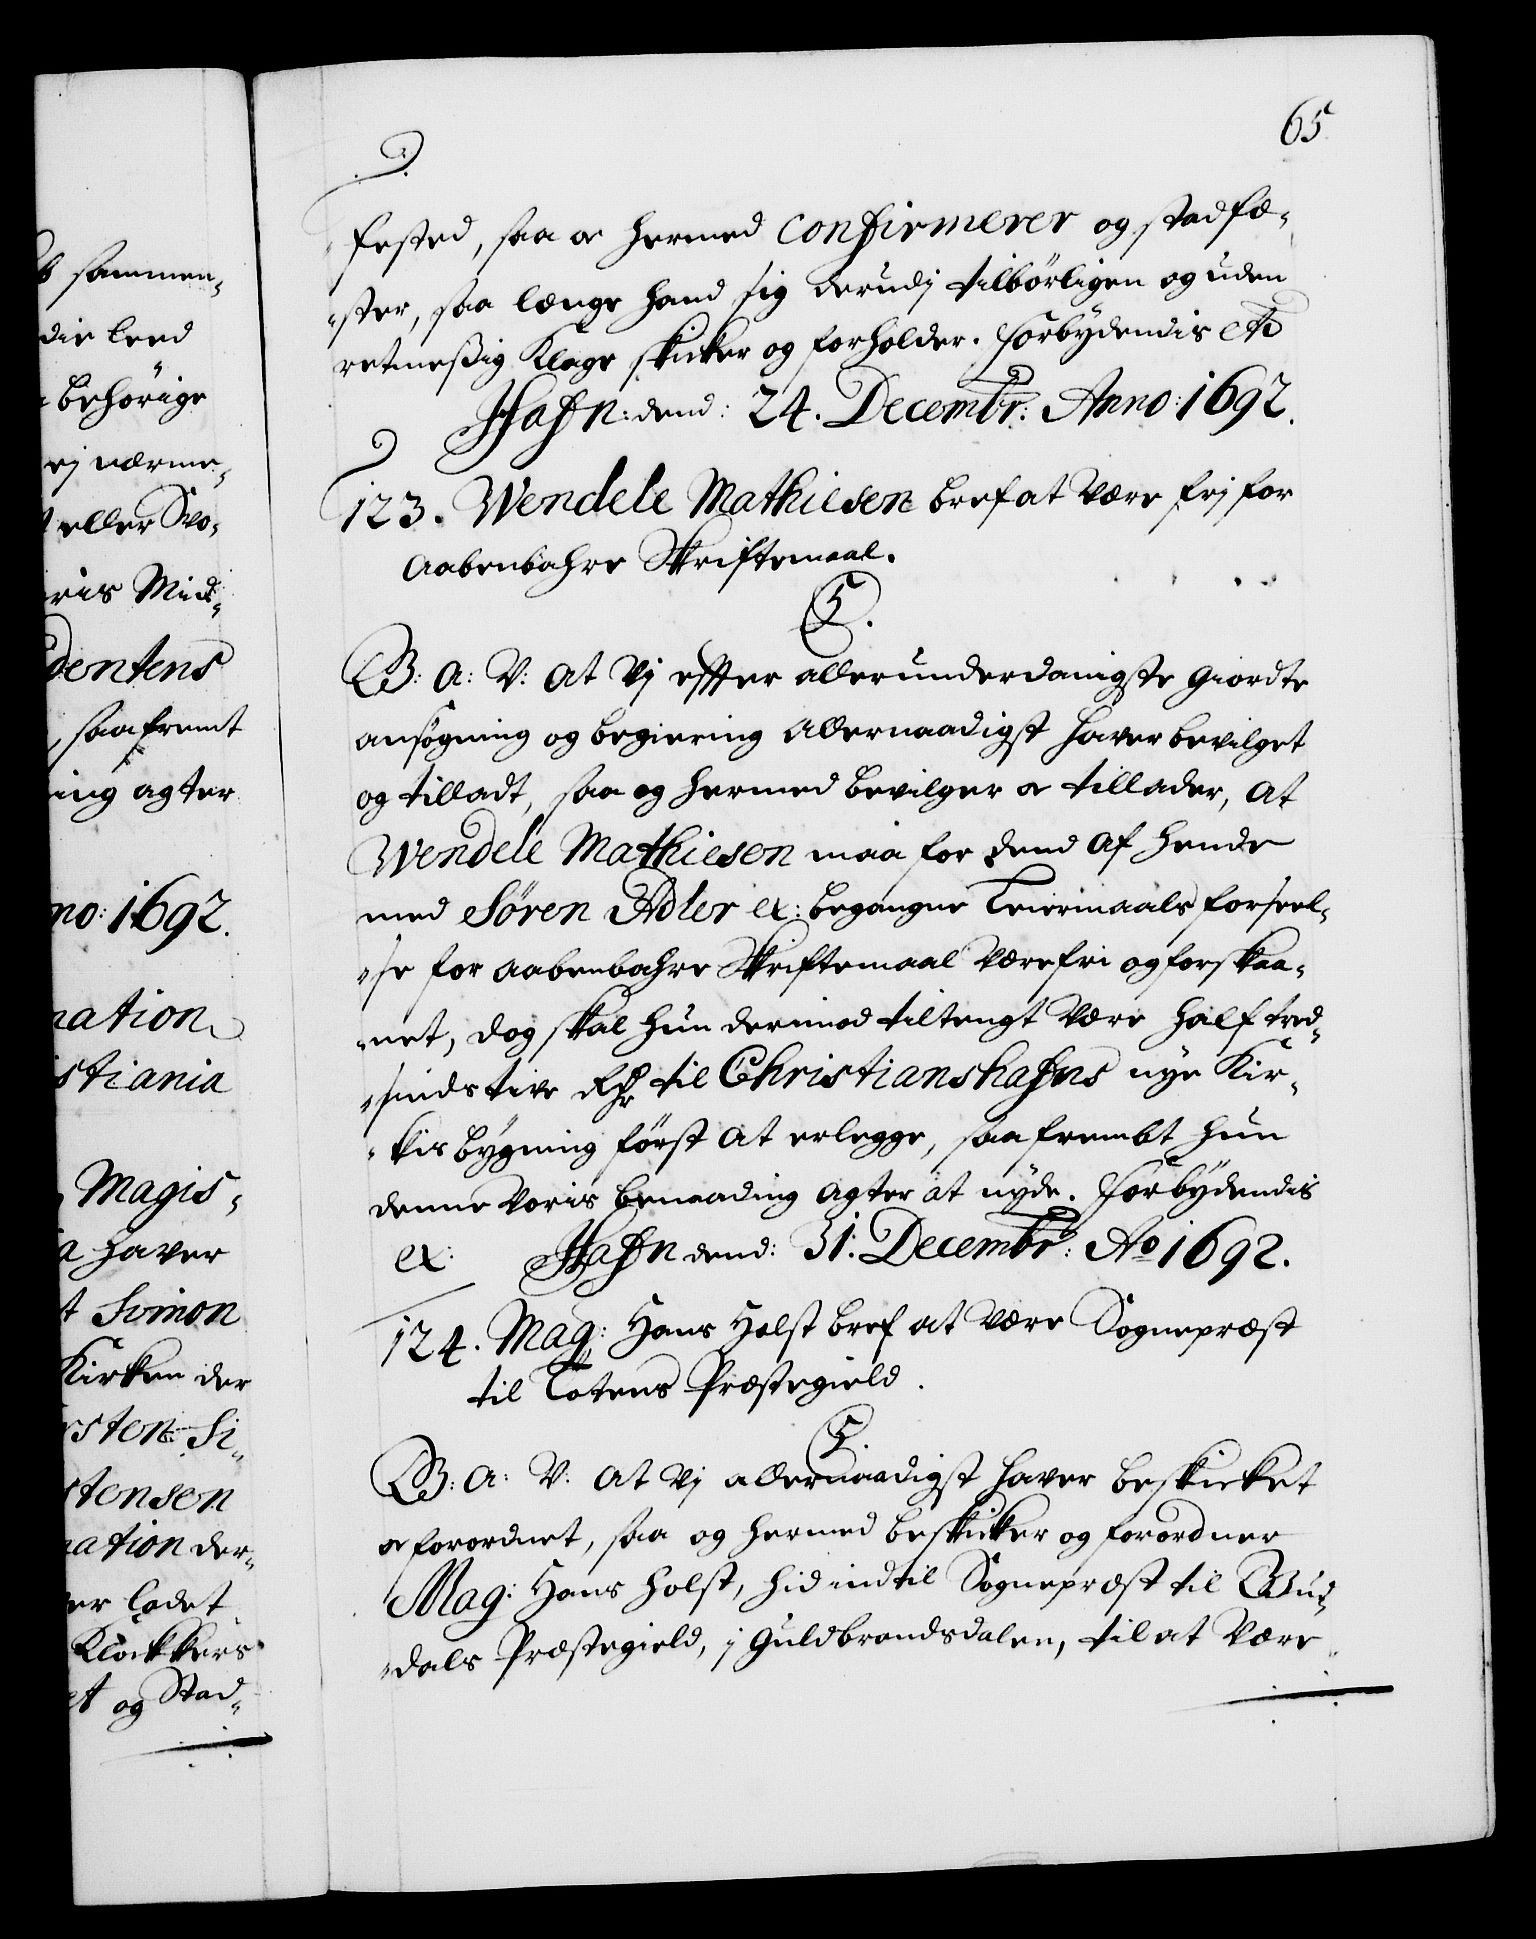 65
fested, saa oc hermed Confirmerer og stadfæ-
-ster, saa længe hand sig derudj tilbörligen og uden
retmeßig Klage skicker og forholder. Forbydendis etc
Hafn: dend: 24. Decembr: Anno: 1692.
123. Wendele Mathiesen bref at være frj for
Aabenbahre Skriftemaal.
C5.
G: A: V: At Vj effter allerunderdanigste giordte
ansögning og begiering allernaadigst hafver bevilget
og tilladt, saa og hermed bevilger oc tillader, at
Wendele Mathiesen maa for dend af hende
med Sören Adler ex: begangne Leiermaals forseel-
-se for aabenbahre Skriftemaal være fri og forskaa-
-net, dog skal hun derimod tiltengt være half tred-
-sindstive Rdr til Christianshafns nye Kir-
-kis bygning först at erlegge, saa frembt hun
denne voris benaading agter at nyde. Forbydendis
ex: Hafn dend: 31: Decembr: Ao 1692.
124. Mag: Hans Holst bref at være Sognepræst
til Totens Præstegield.
C5.
G: A: V: At Vj allernaadigst hafver beskicket
oc forordnet, saa og hermed beskicker og forordner
Mag: Hans Holst, hid indtil Sognepræst til Gud-
-dals Præstegield, j Guldbrandsdalen, til at være
sammen-
die leed
behörige
ej nærme-
eller Svo-
ris Mid-
dentens
, saafremt
ing agter
no: 1692.
nation
stiania
Magis-
a hafver
t Simon
Kirken der
sten Si-
stensen
nation der-
er ladet
Klockkers
et og Stad-